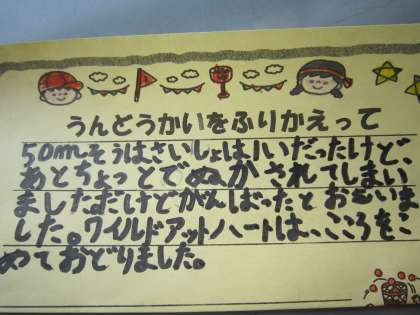 うんどうかいをふりかえって
50mそうはさいしょは1いだったけど、
あとちょっとでぬかされてしまい
ました。だけどがんばったとおむいま
した。ワイルドアットハートは、こころをこ
めておどりました。